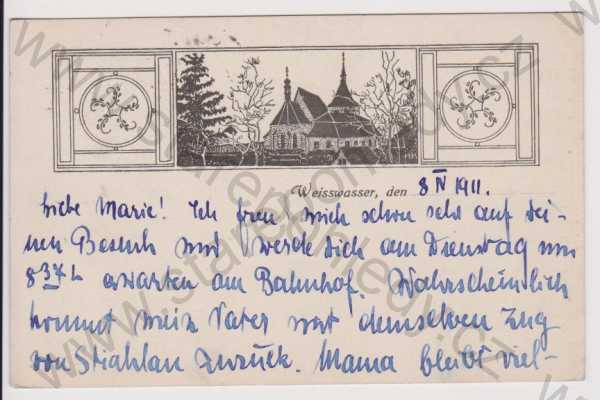 Weisswasser, den 8 IV 1911.
Liebe Marie! Ich freu mich schon sehr auf dei-
nen Besuch und werde dich am Dienstag um
8 37 h erwarten am Bahnhof. Wahrscheinlich
kommt mein Vater mit demselben Zug
von zurück. Mama bleibt viel-
www.starepohledy.cz